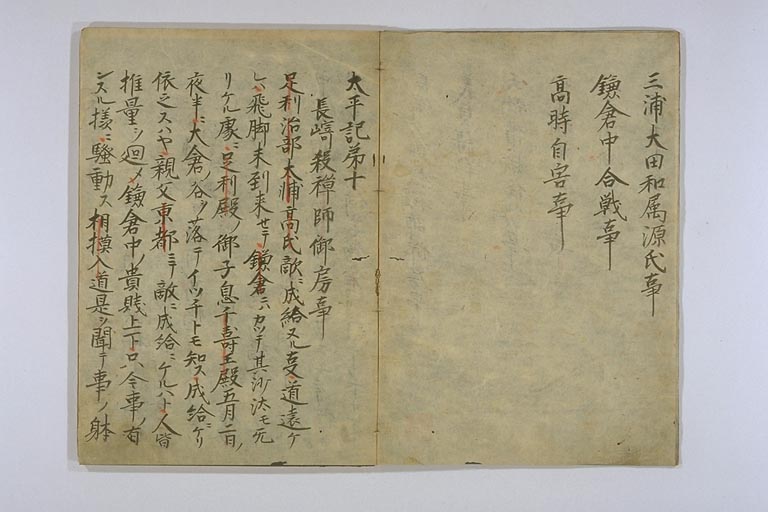 三浦大田和属源氏事
鎌倉中合戦事
高時自害事
太平記第十
長崎殺禅師御房事
足利治部大輔高氏敵ニ成給ヌル事道遠ケ
レハ飛脚未到来セテ鎌倉ニハカツテ其沙汰モ无
リケル處ニ足利殿ノ御子息千壽王殿五月二日ノ
夜半ニ大倉谷ヲ落テイツチトモ知ス成給ニケリ
依之スハヤ親父京都ニテ敵ニ成給ニケルハト人皆
推量シ廻メ鎌倉中ノ貴賤上下只今事ノ有
ンスル様ニ騒動ス相摸入道是ヲ聞テ事ノ躰